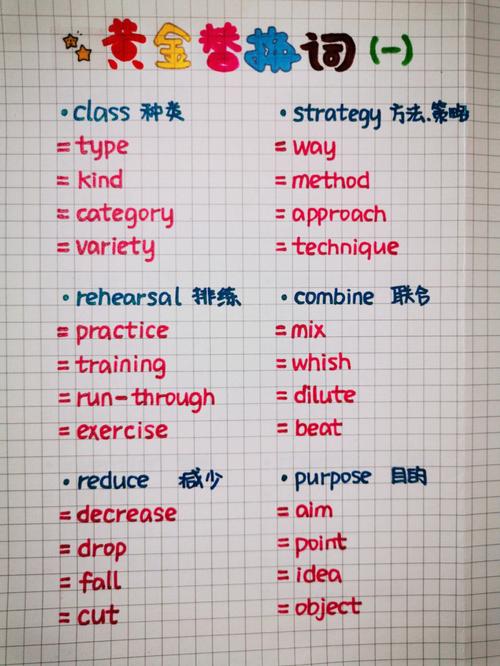 黄金替换词(一)
·class 种类
=type
=kind
=category
=variety
·strategy 方法.策略
=way
=method
=approach
=technique
·rehearsal 排练
=practice
=training
=run-through
=exercise
·combine 联合
=mix
=whish
=dilute
=beat
·reduce 减少
=decrease
=drop
=fall
=cut
·purpose 目的
=aim
=point
=idea
=object